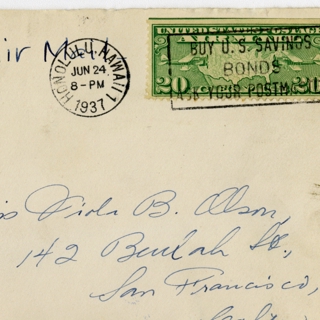 ir Mail
HONOLULU, HAWAII
JUN 24
8-PM
1937
1
UNITED STATES POSTAGE
BUY U.S. SAVINGS
BONDS
ASK YOUR POSTM
20 20
ss Viola B. Olson,
142 Beulah St.,
San Francisco,